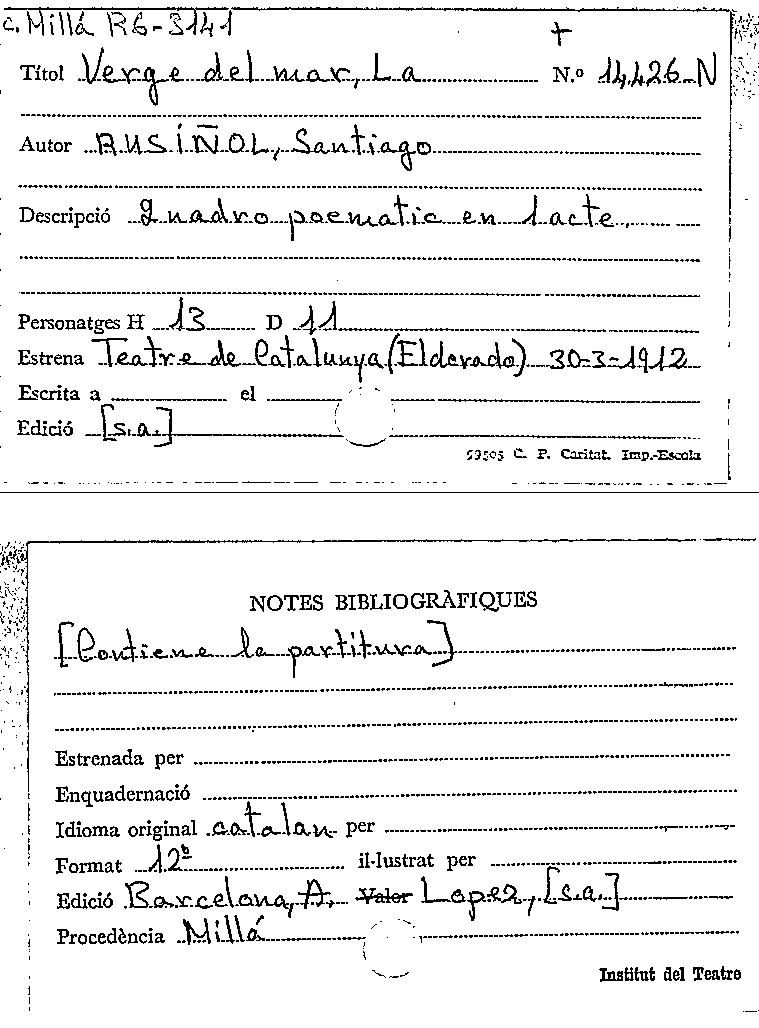 C. Millá R6-3141 +
Títol Verge del mar, La N.º 14,426-N
Autor RUSIÑOL, Santiago
Descripció Quadro poematic en 1 acte.
Personatges H 13 D 11
Estrena Teatre de Catalunya (Eldorado) 30-3-1912
Escrita a el
Edició [s.a.]
53505 C. P. Caritat. Imp.-Escola
NOTES BIBLIOGRÀFIQUES
[Contiene la partitura]
Estrenada per
Enquadernació
Idioma original catalan per
Format 12º il·lustrat per
Edició Barcelona, A. Valor Lopez, [s.a.]
Procedència Millá
Institut del Teatro